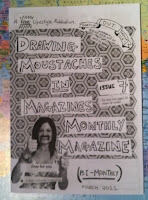 Lifestyle Publication
DRAWING
MOUSTACHES
IN
MAGAZINES
MONTHLY
MAGAZINE
ISSUE 7
BI-MONTHLY
MARCH 2011